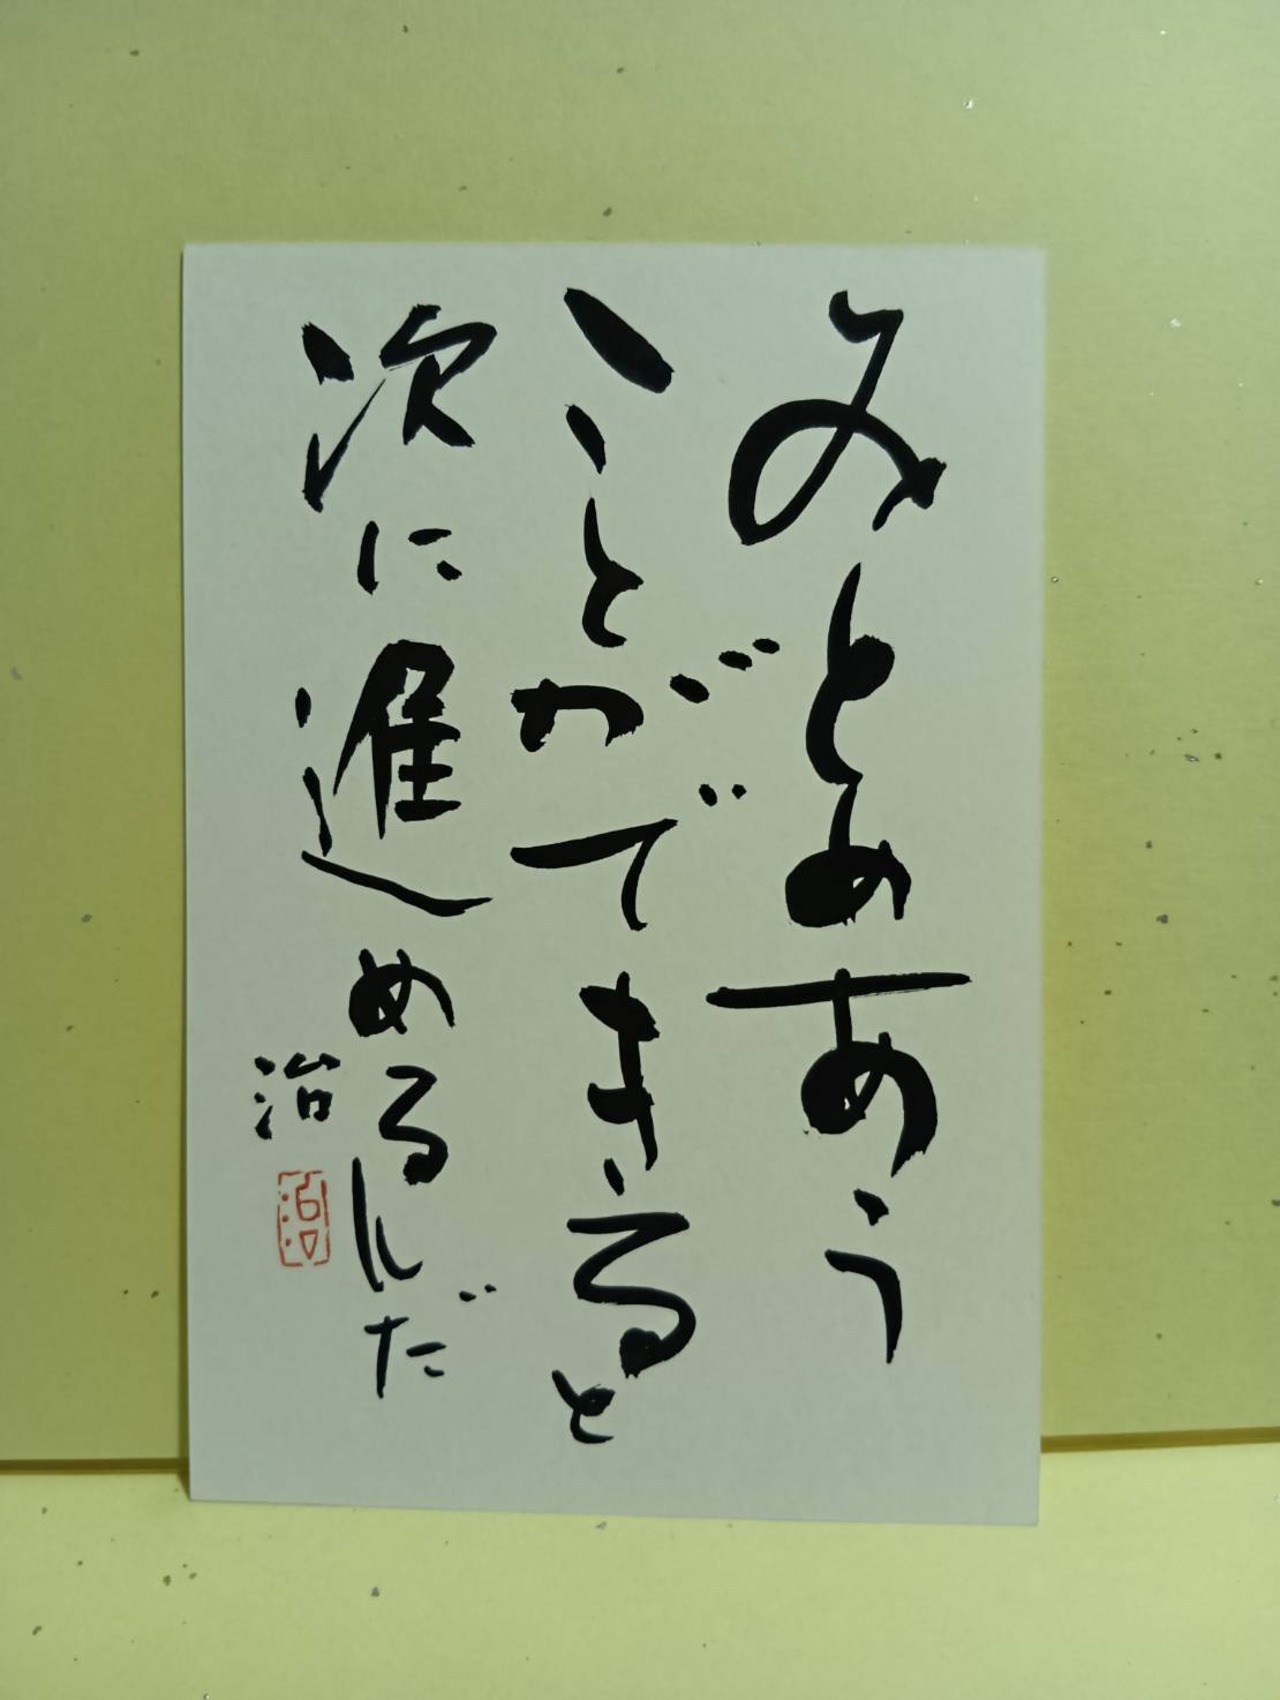 みとめあう
ことができると
次に進めるんだ
治
治